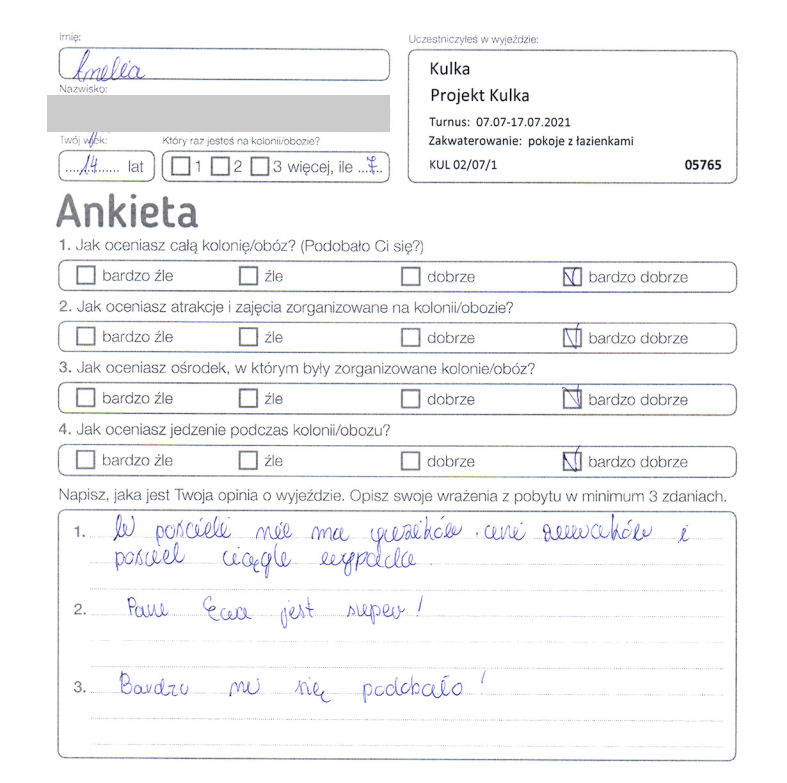 Imię:
Amelia
Nazwisko:
Twój wiek:
14 lat
Który raz jesteś na kolonii/obozie?
1 2 3 więcej, ile 7
Uczestniczyłeś w wyjeździe:
Kulka
Projekt Kulka
Turnus: 07.07-17.07.2021
Zakwaterowanie: pokoje z łazienkami
KUL 02/07/1 05765
Ankieta
1. Jak oceniasz całą kolonię/obóz? (Podobało Ci się?)
bardzo źle źle dobrze bardzo dobrze
2. Jak oceniasz atrakcje i zajęcia zorganizowane na kolonii/obozie?
bardzo źle źle dobrze bardzo dobrze
3. Jak oceniasz ośrodek, w którym były zorganizowane kolonie/obóz?
bardzo źle źle dobrze bardzo dobrze
4. Jak oceniasz jedzenie podczas kolonii/obozu?
bardzo źle źle dobrze bardzo dobrze
Napisz, jaka jest Twoja opinia o wyjeździe. Opisz swoje wrażenia z pobytu w minimum 3 zdaniach.
1. W pościeli nie ma guzików ani zamków i
pościel ciągle wypada.
2. Pani Ewa jest super!
3. Bardzo mi się podobało!